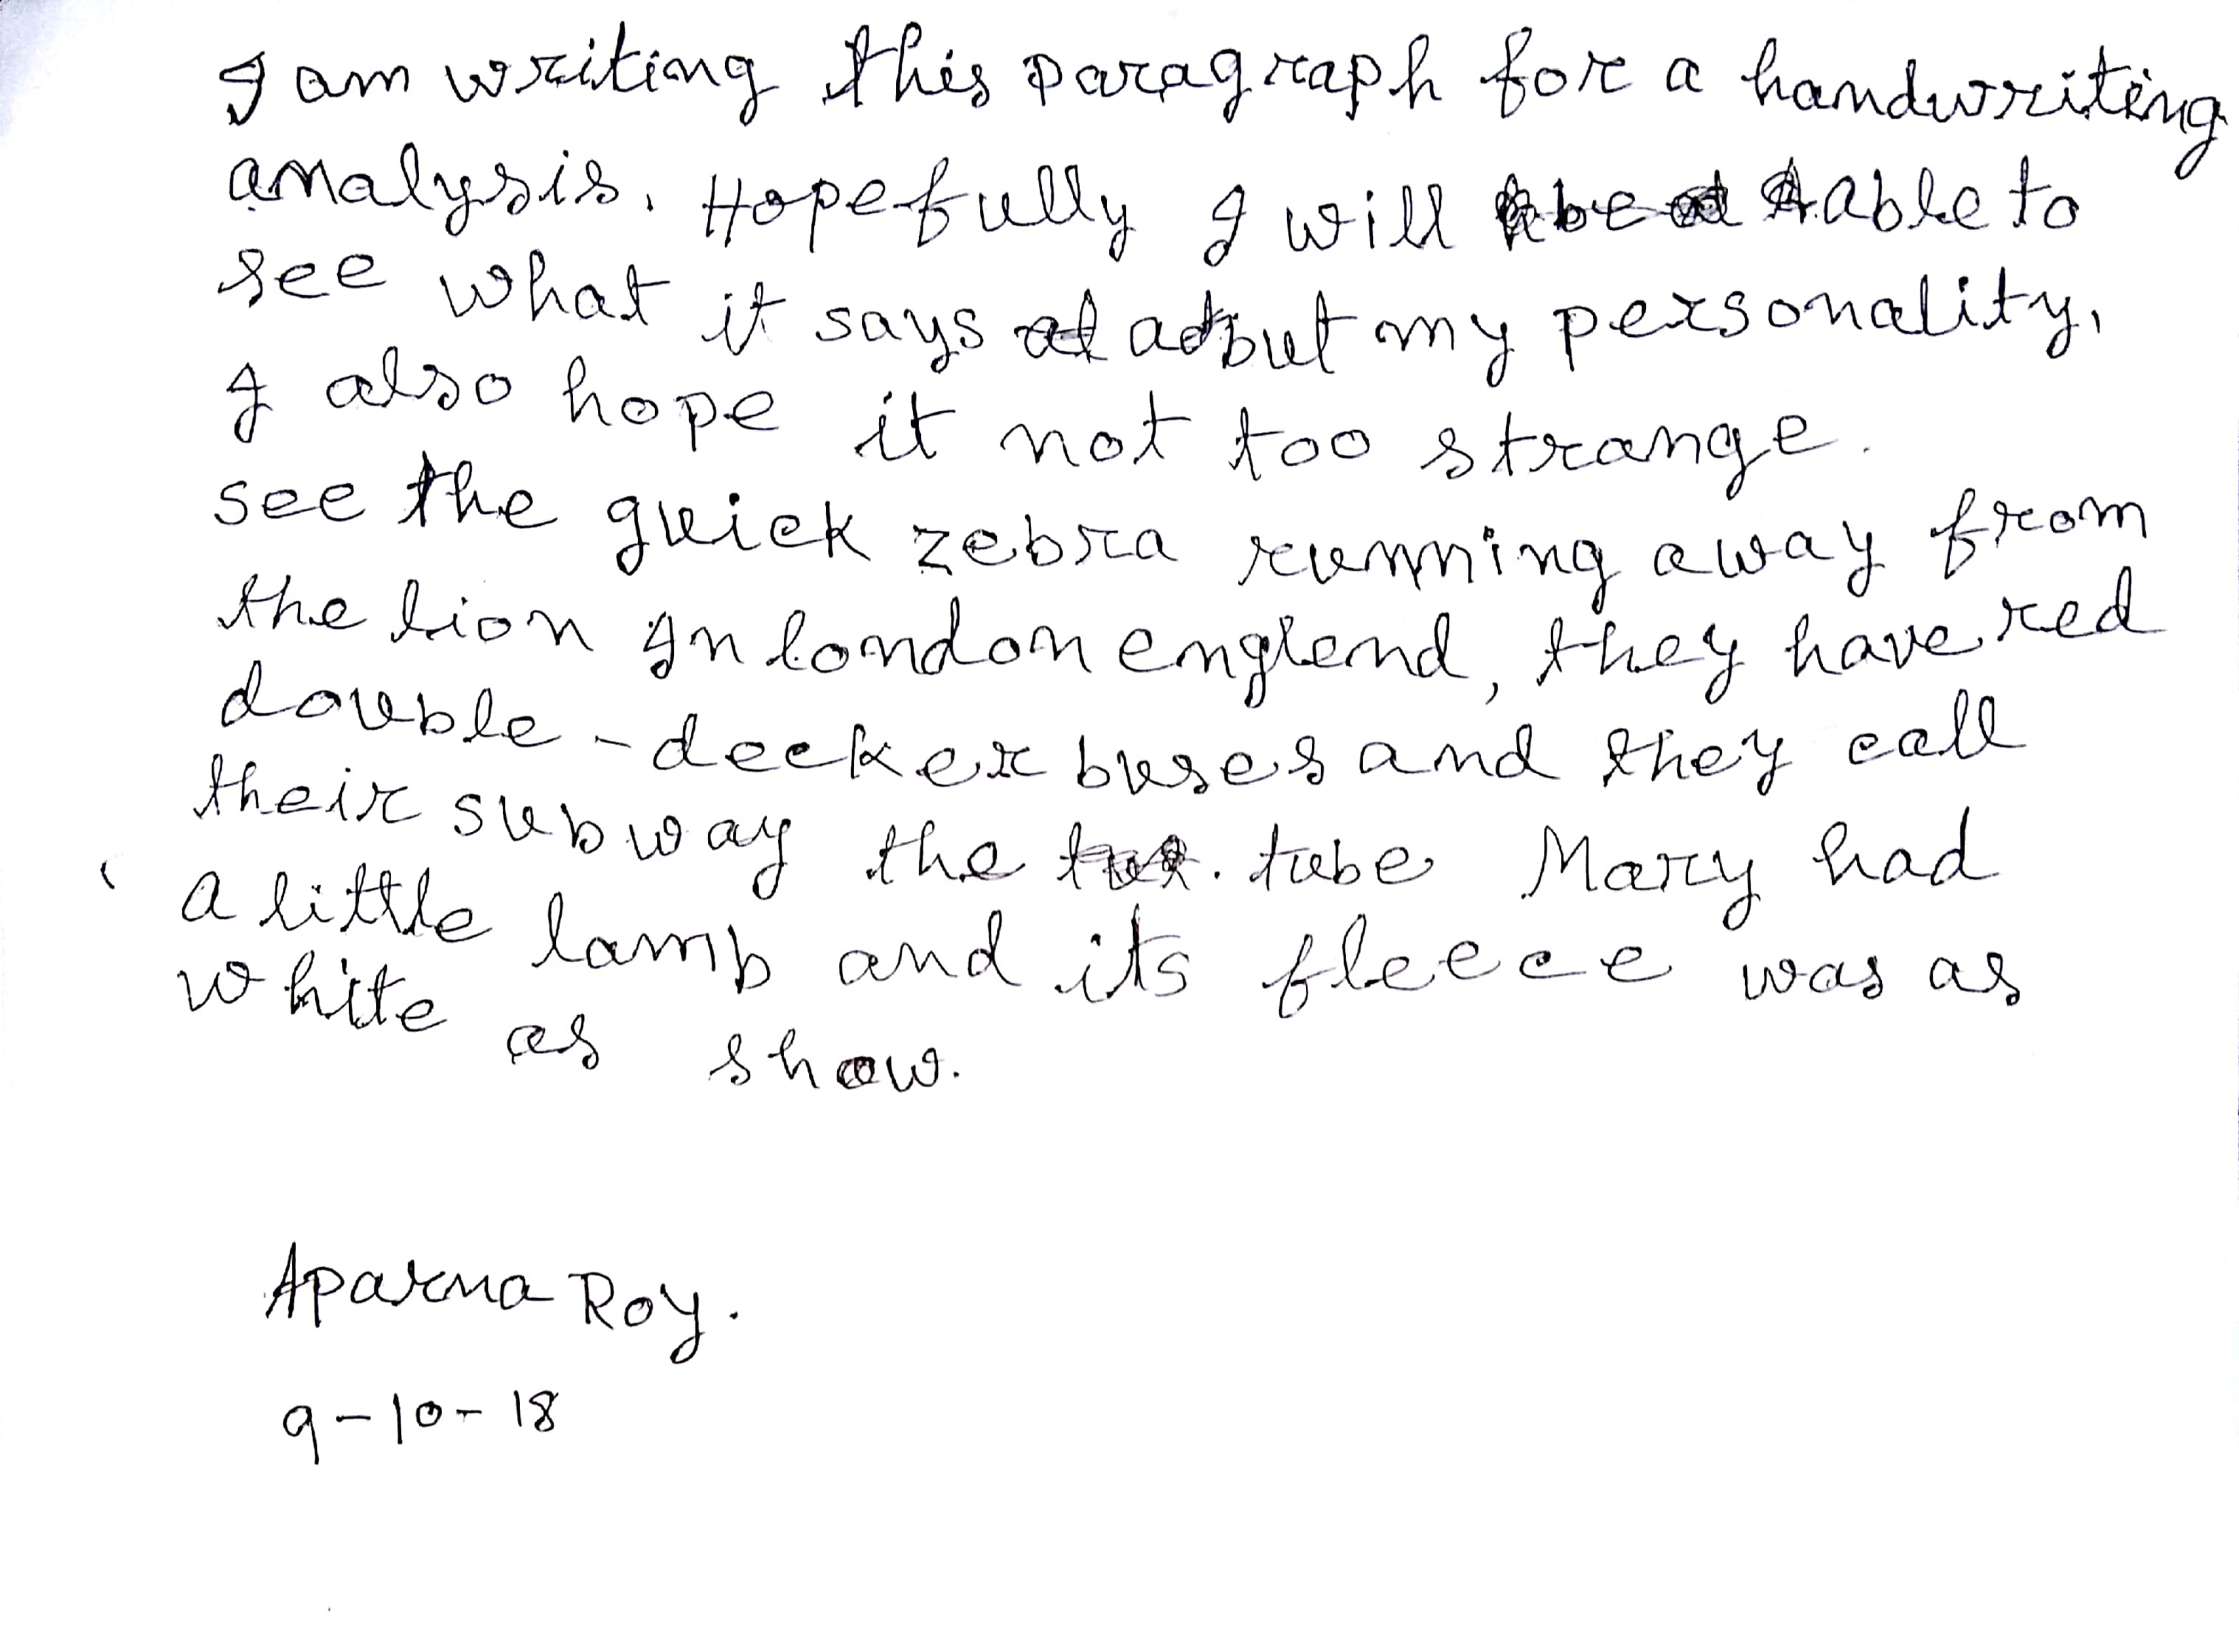 I am writing this paragraph for a handwriting
analysis. Hopefully I will be able to
see what it says about my personality,
I also hope it not too strange.
see the quick zebra running away from
the lion In london englend, they have red
double-decker buses and they call
their subway the tube Mary had
a little lamb and its fleece was as
white as show.
Aparna Roy.
9-10-18